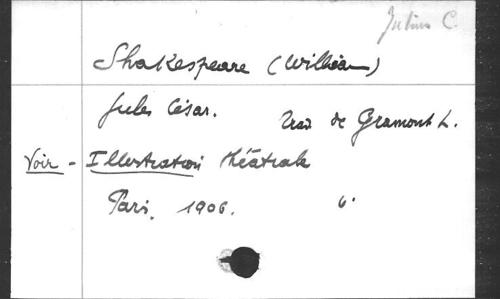 Julius C.
Shakespeare (William)
Jules César. Trad de Gramont L.
Voir - Illustration théâtrale
Paris, 1906. 6.